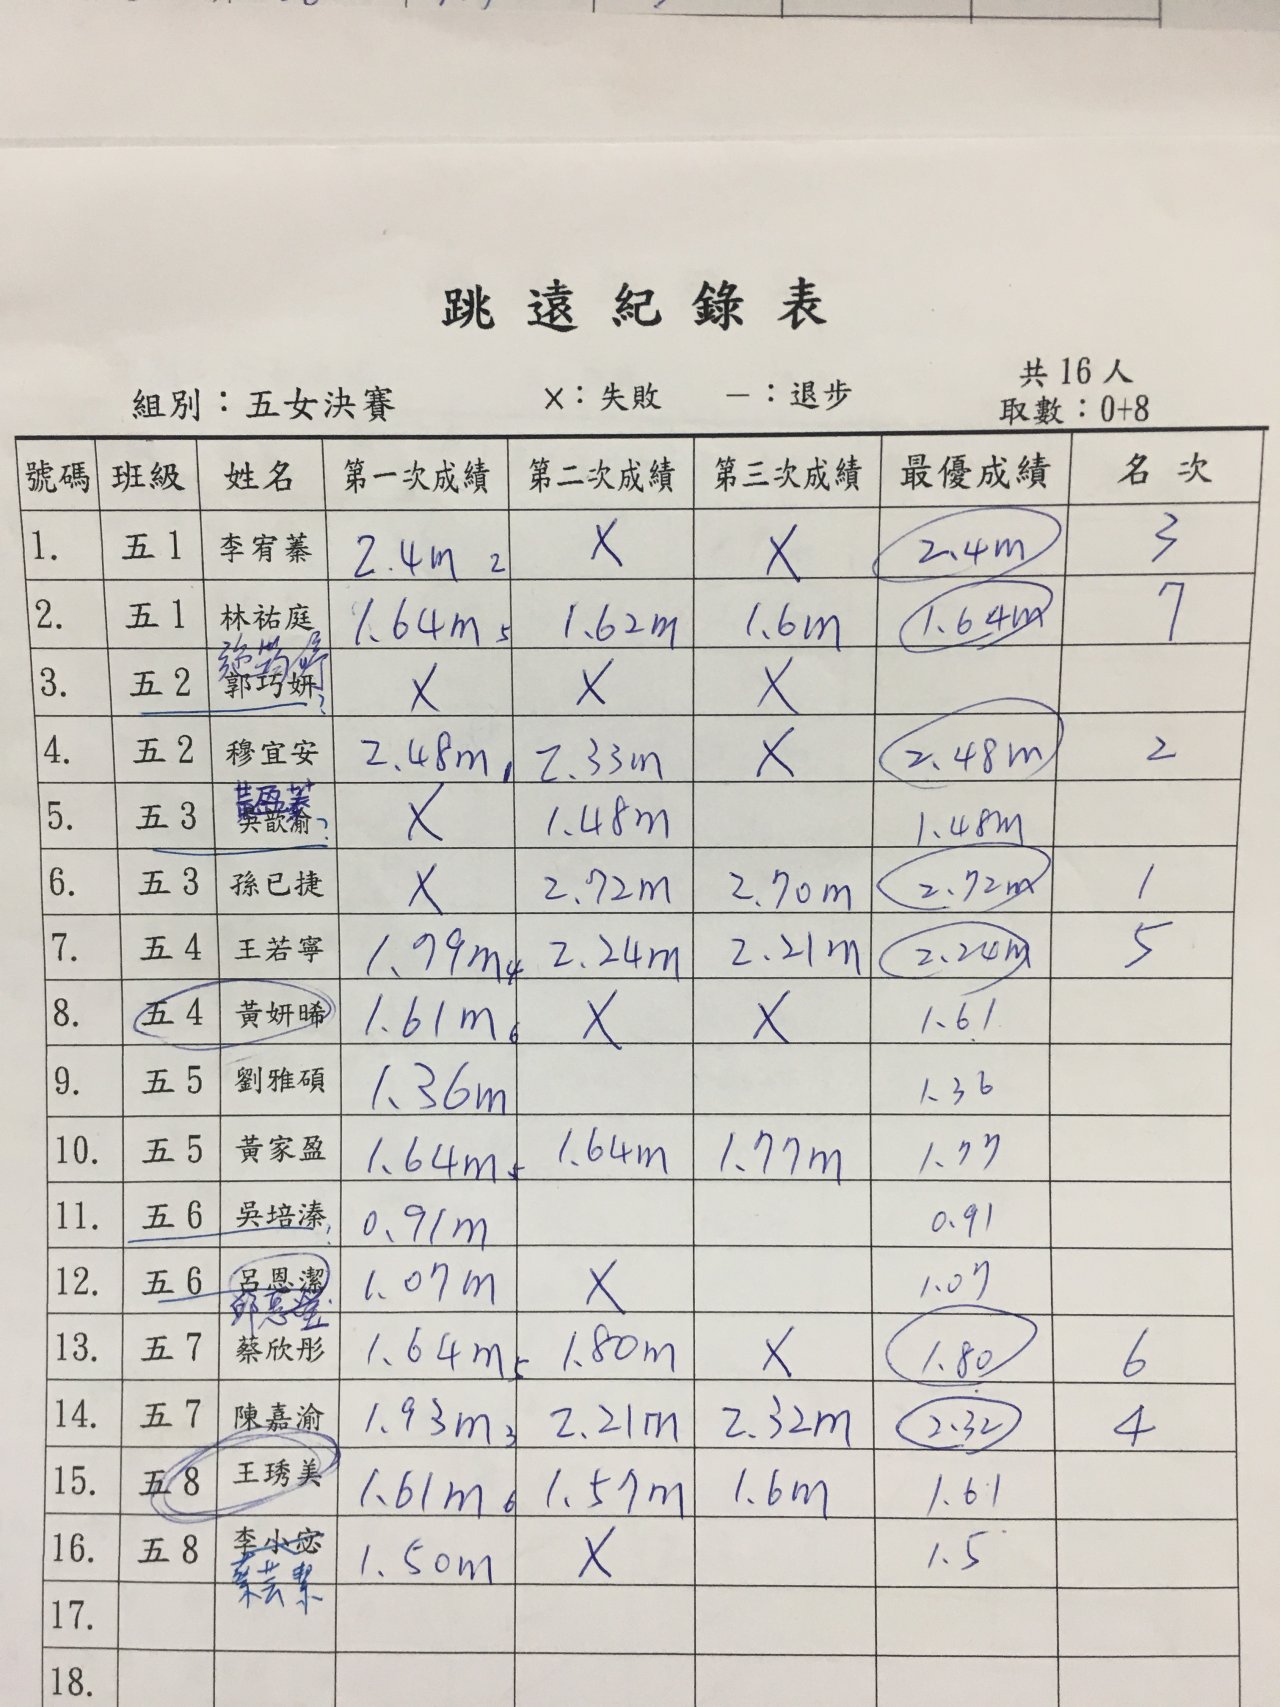 跳遠紀錄表
共16人
組別：五女決賽 ×：失敗 －：退步
取數：0+8
號碼 班級 姓名 第一次成績 第二次成績 第三次成績 最優成績 名次
1. 五1 李宥蓁 2.4m 2 X X 2.4m 3
2. 五1 林祐庭 1.64m 5 1.62m 1.6m 1.64m 7
3. 五2 郭巧妍 ? X X X
4. 五2 穆宜安 2.48m 1 2.33m X 2.48m 2
黃盈蓁
5. 五3 吳歆渝 ? X 1.48m 1.48m
6. 五3 孫已捷 X 2.72m 2.70m 2.72m 1
7. 五4 王若寧 1.79m 4 2.24m 2.21m 2.24m 5
8. 五4 黃妍晞 1.61m 6 X X 1.61
9. 五5 劉雅碩 1.36m 1.36
10. 五5 黃家盈 1.64m 5 1.64m 1.77m 1.77
11. 五6 吳培溱 0.91m 0.91
12. 五6 呂恩潔 1.07m X 1.07
13. 五7 蔡欣彤 1.64m 5 1.80m X 1.80 6
14. 五7 陳嘉渝 1.93m 3 2.21m 2.32m 2.32 4
15. 五8 王琇美 1.61m 6 1.57m 1.6m 1.61
16. 五8 李小宓 1.50m X 1.5
蔡芸潔
17.
18.